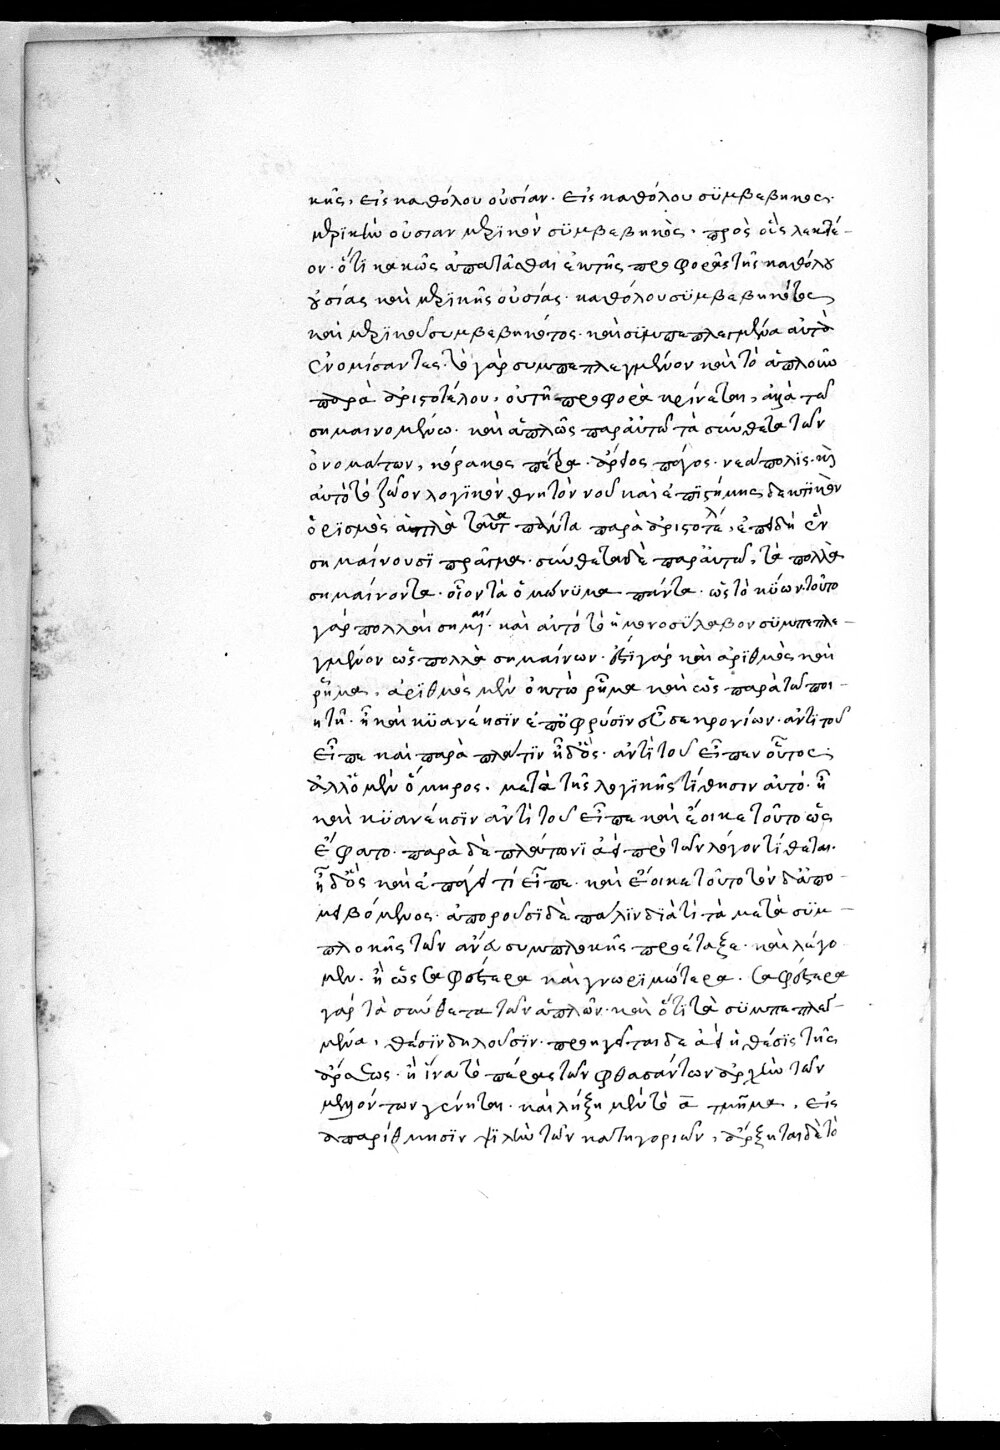 κῆς, εἰς καθόλου οὐσίαν. εἰς καθόλου συμβεβηκός.
μερικὴν οὐσίαν μερικὸν συμβεβηκὸς. πρὸς οὓς λεκτέ-
ον. ὅτι κακῶς ἀπατᾶσθαι ἐκ τῆς προφορᾶς τῆς καθόλου
οὐσίας καὶ μερικῆς οὐσίας. καθόλου συμβεβηκότος
καὶ μερικοῦ συμβεβηκότος. καὶ συμπεπλεγμένα αὐτὸ
νομίσαντες. τὸ γὰρ συμπεπλεγμένον καὶ τὸ ἁπλοῦν
παρὰ ἀριστοτέλους, οὐ τῇ προφορᾷ κρίνεται, ἀλλὰ τῷ
σημαινομένῳ. καὶ ἁπλῶς παρ' αὐτῷ τὰ σύνθετα τῶν
ὀνομάτων, κόρακος πέτρα. ἄρειος πάγος. νεάπολις. καὶ
αὐτὸ τὸ ζῶον λογικὸν θνητὸν νοῦ καὶ ἐπιστήμης δεκτικὸν
ὁρισμὸς ἁπλᾶ ταῦτα πάντα παρὰ ἀριστοτέλει, ἐπειδὴ ἓν
σημαίνουσι πρᾶγμα. σύνθετα δὲ παρ' αὐτῷ, τὰ πολλὰ
σημαίνοντα. οἷον τὰ ὁμώνυμα πάντα. ὡς τὸ κύων. τοῦτο
γὰρ πολλὰ σημαίνει. καὶ αὐτὸ τὸ ἦ μονοσύλλαβον συμπεπλε-
γμένον ὡς πολλὰ σημαίνων. ἔστι γὰρ καὶ ἀριθμὸς καὶ
ῥῆμα. ἀριθμὸς μὲν ὀκτὼ ῥῆμα καὶ ὡς παρὰ τῷ ποι-
ητῇ. ἦ καὶ κυανέησιν ἐπ' ὀφρύσιν νεῦσε κρονίων. ἀντὶ τοῦ
εἶπε καὶ παρὰ πλάτωνι ἦ δ' ὅς. ἀντὶ τοῦ εἶπεν οὗτος.
ἀλλ' ὁ μὲν ὅμηρος. μετὰ τῆς λογικῆς τίθησιν αὐτό. ἦ
καὶ κυανέησιν ἀντὶ τοῦ εἶπε καὶ ἔοικε τοῦτο ὡς
ἔφατο. παρὰ δὲ πλάτωνι ἀεὶ πρὸ τῶν λόγων τίθεται.
ἦ δ' ὅς καὶ ἐπάγει τί εἶπε. καὶ ἔοικε τοῦτο τὸν δ' ἀπα-
μειβόμενος. ἀποροῦσι δὲ πάλιν διὰ τί τὰ μετὰ συμ-
πλοκῆς τῶν ἄνευ συμπλοκῆς προέταξε. καὶ λέγο
μεν. ἢ ὡς σαφέστερα καὶ γνωριμώτερα. σαφέστερα
γὰρ τὰ σύνθετα τῶν ἁπλῶν. καὶ ὅτι τὰ συμπεπλεγ-
μένα, θέσιν δηλοῦσιν. προηγεῖται δὲ ἀεὶ ἡ θέσις τῆς
ἄρσεως. ἢ ἵνα τὸ πέρας τῶν φθασάντων ἀρχὴ τῶν
μελλόντων γένηται. καὶ λήξῃ μὲν τὸ α τμῆμα. εἰς
ἀπαρίθμησιν ψιλὴν τῶν κατηγοριῶν, ἄρξηται δὲ τὸ